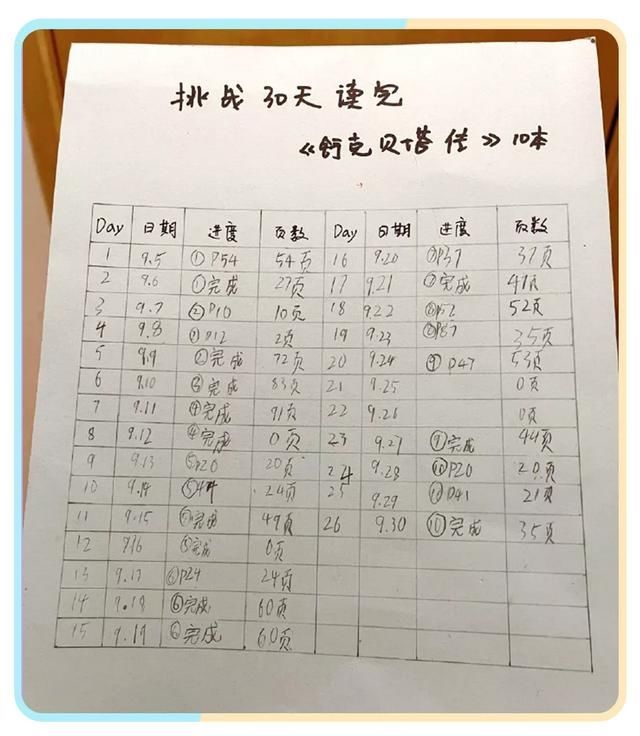 挑战30天读完
《舒克贝塔传》10本
Day 日期 进度 页数 Day 日期 进度 页数
1 9.5 ①P54 54页 16 9.20 ⑦P37 37页
2 9.6 ①完成 27页 17 9.21 ⑦完成 47页
3 9.7 ②P10 10页 18 9.22 ⑧P52 52页
4 9.8 ②P12 2页 19 9.23 ⑧P87 35页
5 9.9 ②完成 72页 20 9.24 ⑨P47 53页
6 9.10 ③完成 83页 21 9.25 0页
7 9.11 ④完成 91页 22 9.26 0页
8 9.12 ④完成 0页 23 9.27 ⑨完成 44页
9 9.13 ⑤P20 20页 24 9.28 ⑩P20 20页
10 9.14 ⑤44 24页 25 9.29 ⑩P41 21页
11 9.15 ⑤完成 49页 26 9.30 ⑩完成 35页
12 9.16 ⑤完成 0页
13 9.17 ⑥P24 24页
14 9.18 ⑥完成 60页
15 9.19 ⑥完成 60页